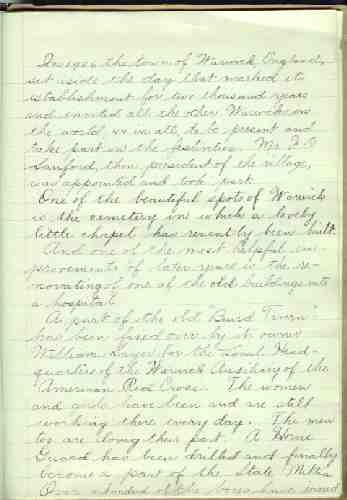 the town of Warwick, England,
set aside the day that marked its
establishment for two thousand years
and invited all the other Warwicks in
the world, in all, to be present and
take part in the festivities. Mr. F.
Sanford, then president of the village,
was appointed and took part.
One of the beautiful spots of Warwick
is the cemetery in which a lovely
little chapel has recently been built.
And one of the most helpful im-
provements of later years is the re-
novating of one of the old buildings into
a hospital.
A part of the old "Baird Tavern"
has been given over by its owner
William Sayer for the Local Head-
quarters of the Warwick Auxiliary of the
American Red Cross. The women
and girls have been and are still
working there every day. The men
too are doing their part. A Home
Guard has been drilled and finally
become a part of the State Militia
Over a hundred of the boys have